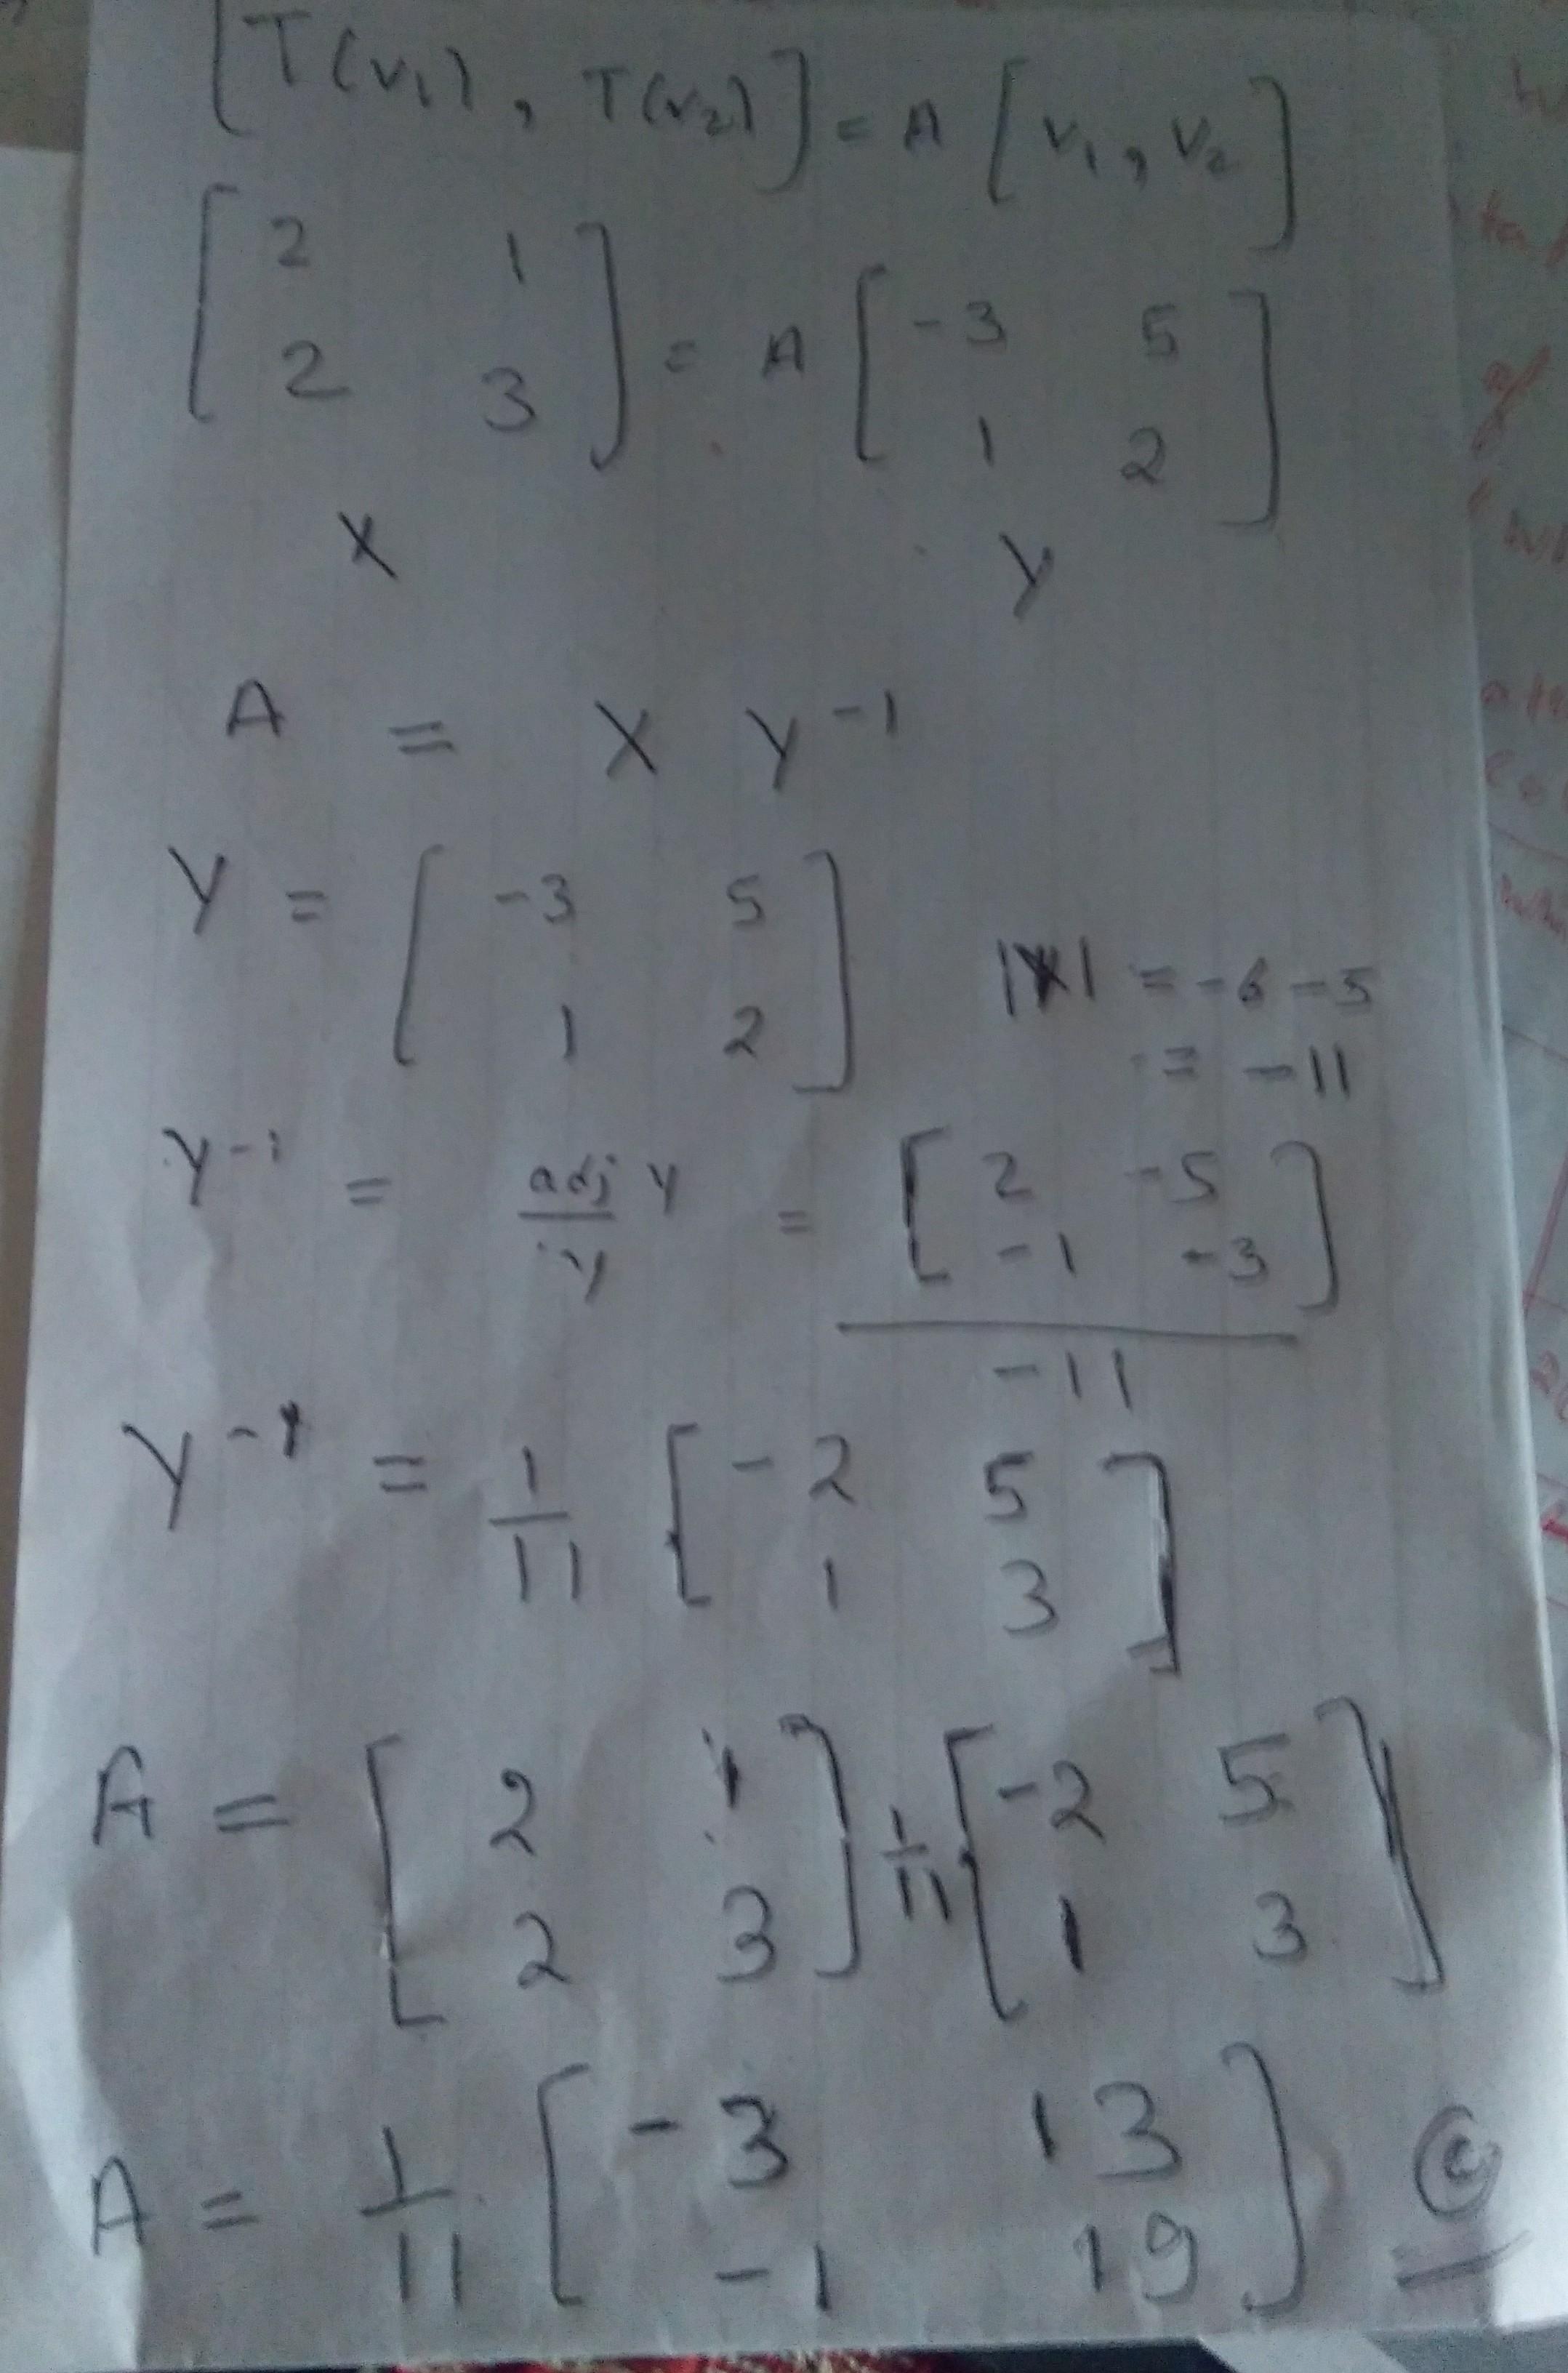 [T(v₁), T(v₂)] = A [v₁, v₂]
[2 1
2 3] = A [-3 5
1 2]
X Y
A = X Y⁻¹
Y = [-3 5
1 2]
|Y| = -6 -5
= -11
Y⁻¹ = adj Y / Y = [2 -5
-1 -3]
-11
Y⁻¹ = 1/11 [-2 5
1 3]
A = [2 1
2 3] 1/11 [-2 5
1 3]
A = 1/11 [-3 13
-1 19] (c)